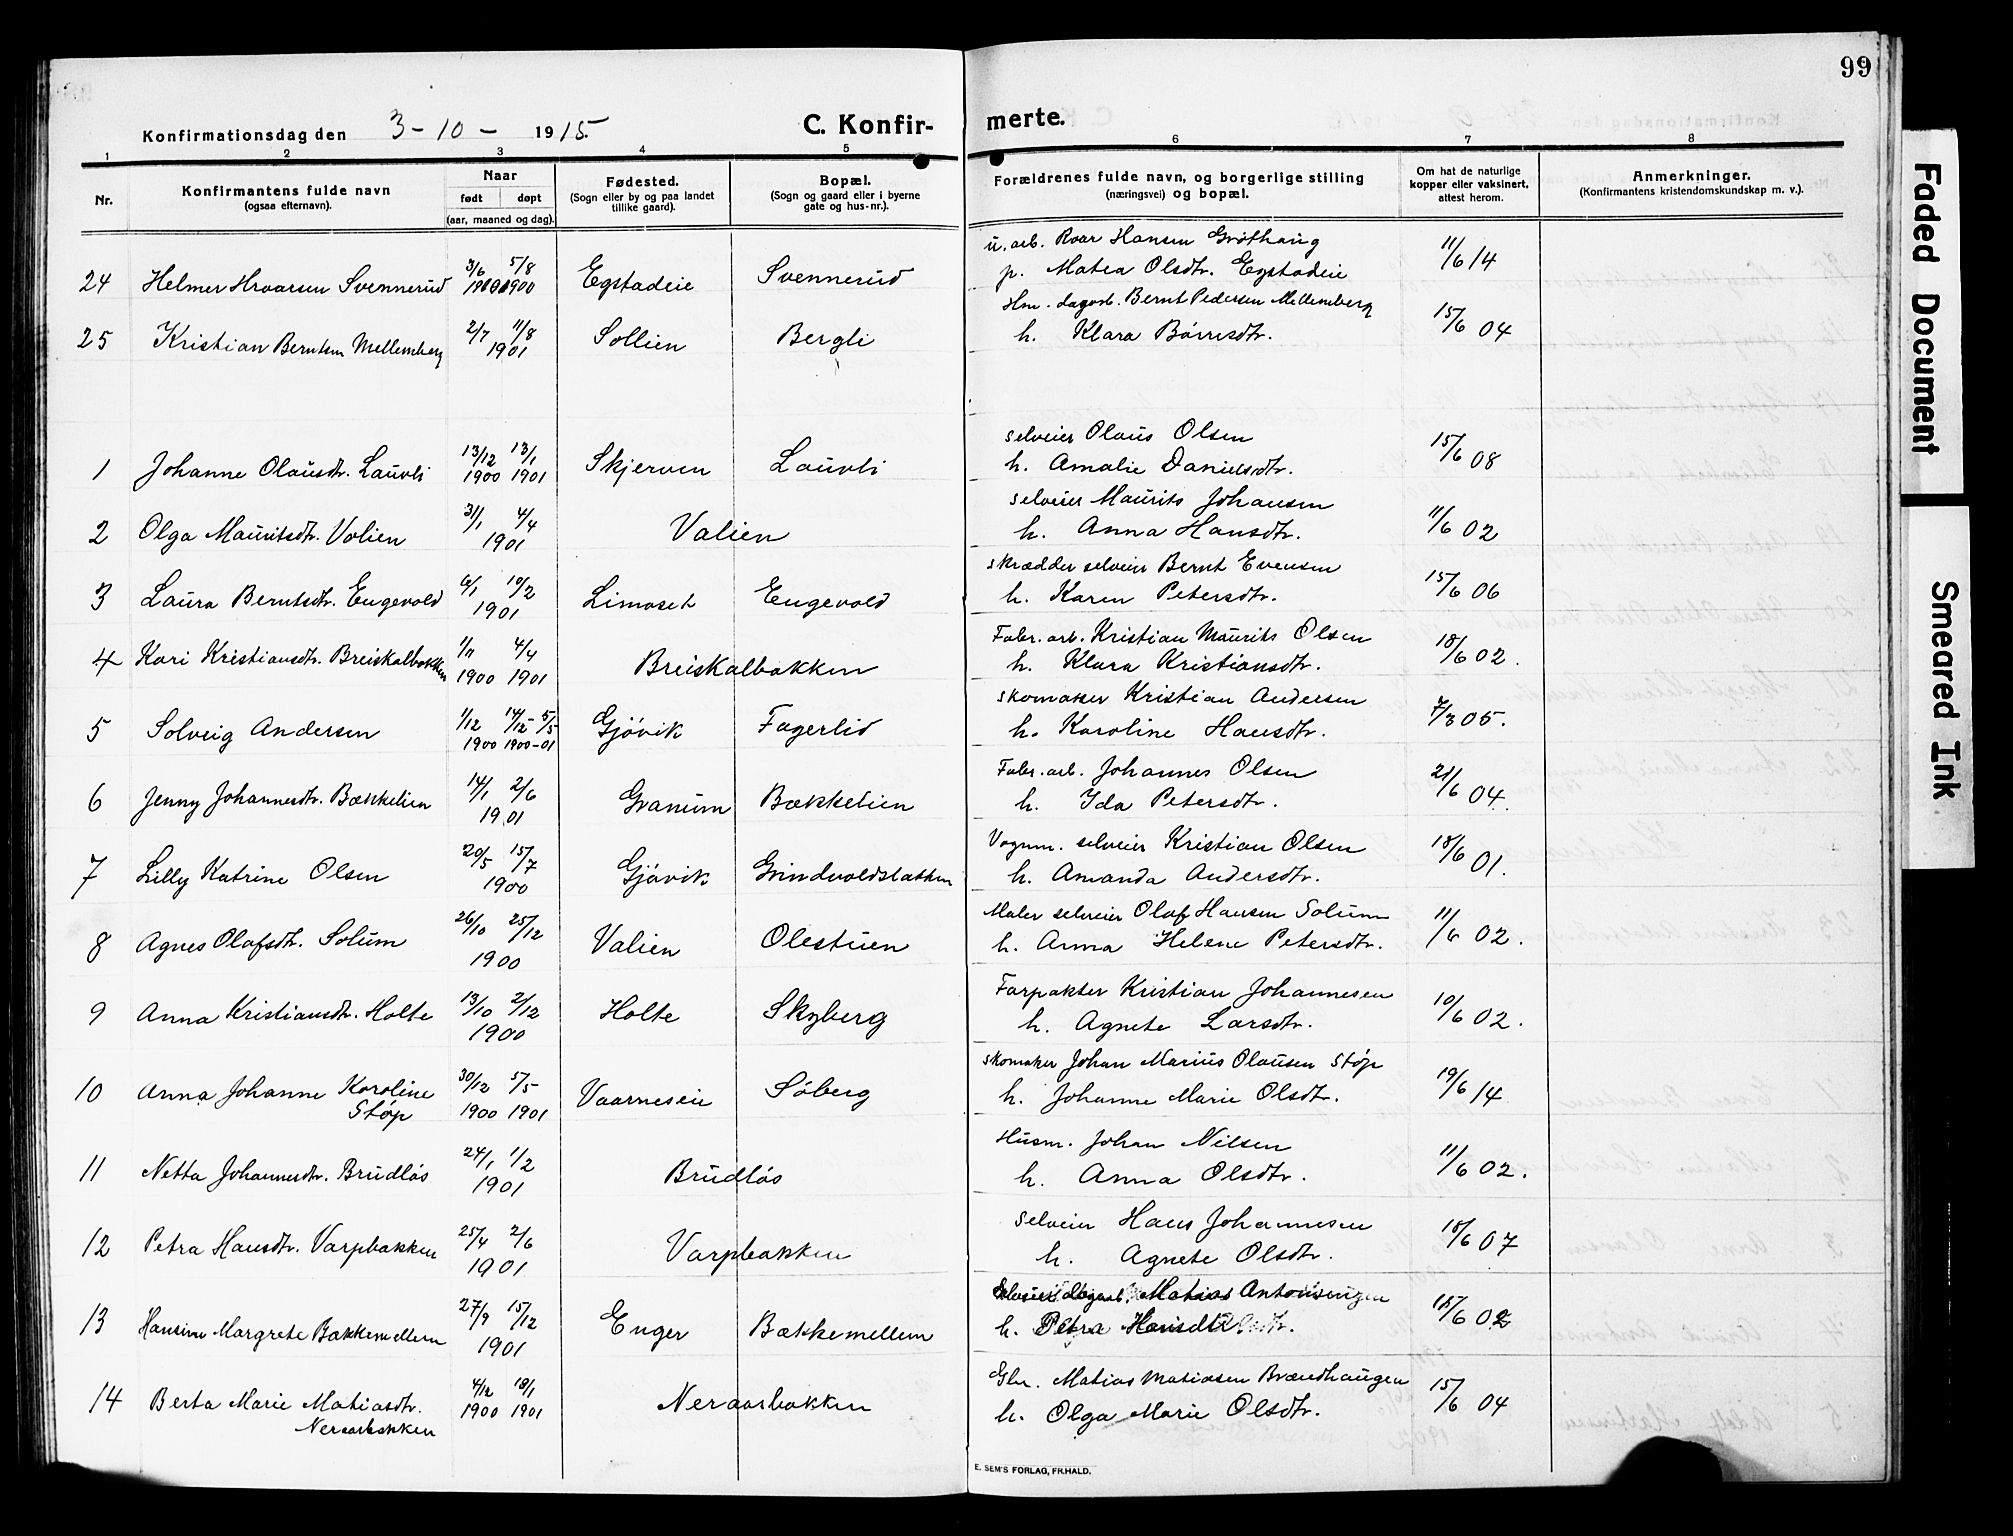 99
Konfirmationsdag den 3-10- 1915.
C. Konfir-
merte.
1 2 3 4 5 6 7 8
Nr.
Konfirmantens fulde navn
(ogsaa efternavn).
Naar
født døpt
(aar, maaned og dag).
Fødested.
(Sogn eller by og paa landet
tillike gaard).
Bopæl.
(Sogn og gaard eller i byerne
gate og hus-nr.).
Forældrenes fulde navn, og borgerlige stilling
(næringsvei) og bopæl.
Om hat de naturlige
kopper eller vaksinert,
attest herom.
Anmerkninger.
(Konfirmantens kristendomskundskap m. v.).
u. arb. Roar Hansen Grøthaug
24 Helmer Hroarsen Svennerud 3/6 5/8 1900 Egstadeie Svennerud
p. Matea Olsdtr. Egstadeie 11/6 14
Hm. dagarb. Bernt Pedersen Mellemberg
25 Kristian Berntsen Mellemberg 2/7 11/8 1901 Sollien Bergli
h. Klara Børresdtr. 15/6 04
selveier Olaus Olsen
1 Johanne Olausdtr. Lauvli 13/12 1900 13/1 1901 Skjerven Lauvli
h. Amalie Danielsdtr. 15/6 08
selveier Maurits Johansen
2 Olga Mauritsdtr. Valien 31/1 4/4 1901 Valien
h. Anna Hansdtr. 11/6 02
skrædder selveier Bernt Evensen
3 Laura Berntsdtr. Engevold 6/1 10/2 1901 Limoset Engevold
h. Karen Petersdtr. 15/6 06
Fabr. arb. Kristian Maurits Olsen
4 Kari Kristiansdtr. Breiskalbakken 1/11 1900 4/4 1901 Breiskalbakken
h. Klara Kristiansdtr. 18/6 02.
skomaker Kristian Andersen
5 Solveig Andersen 1/12 1900 14/12 - 5/5 1900-01 Gjøvik Fagerlid
h. Karoline Hansdtr. 7/3 05.
Fabr. arb. Johannes Olsen
6 Jenny Johannesdtr. Bækkelien 14/1 2/6 1901 Granum Bækkelien
h. Ida Petersdtr. 21/6 04.
Vognm. selveier Kristian Olsen
7 Lilly Katrine Olsen 20/5 15/7 1900 Gjøvik Grindvoldsbakken
h. Amanda Andersdtr. 18/6 01.
Maler selveier Olaf Hansen Solum
8 Agnes Olafsdtr. Solum 26/10 25/12 1900 Valien Olestuen
h. Anna Helene Petersdtr. 11/6 02.
Forpakter Kristian Johannesen
9 Anna Kristiansdtr. Holte 13/10 2/12 1900 Holte Skyberg
h. Agnete Larsdtr. 10/6 02.
skomaker Johan Marius Olausen Støp
10 Anna Johanne Karoline
Støp 30/12 1900 5/5 1901 Vaarneseie Søberg
h. Johanne Marie Olsdtr. 19/6 14
Husm. Johan Nilsen
11 Netta Johannesdtr. Brudløs 24/1 1/2 1901 Brudløs
h. Anna Olsdtr. 11/6 02.
Selveier Hans Johannesen
12 Petra Hansdtr. Varpbakken 25/4 2/6 1901 Varpbakken
h. Agnete Olsdtr. 18/6 07
Matias Antonsen
13 Hansine Margrete Bakkemellem 27/9 15/12 1901 Enger Bækkemellem
h. Petra Hansdtr. 15/6 02
Gbr. Matias Matiasen Brændhaugen
14 Berta Marie Matiasdtr.
Neraarbakken 4/12 1900 18/1 1901 Neraarbakken
h. Olga Marie Olsdtr. 15/6 04
E. SEM'S FORLAG, FR.HALD.
Faded Document
Smeared Ink